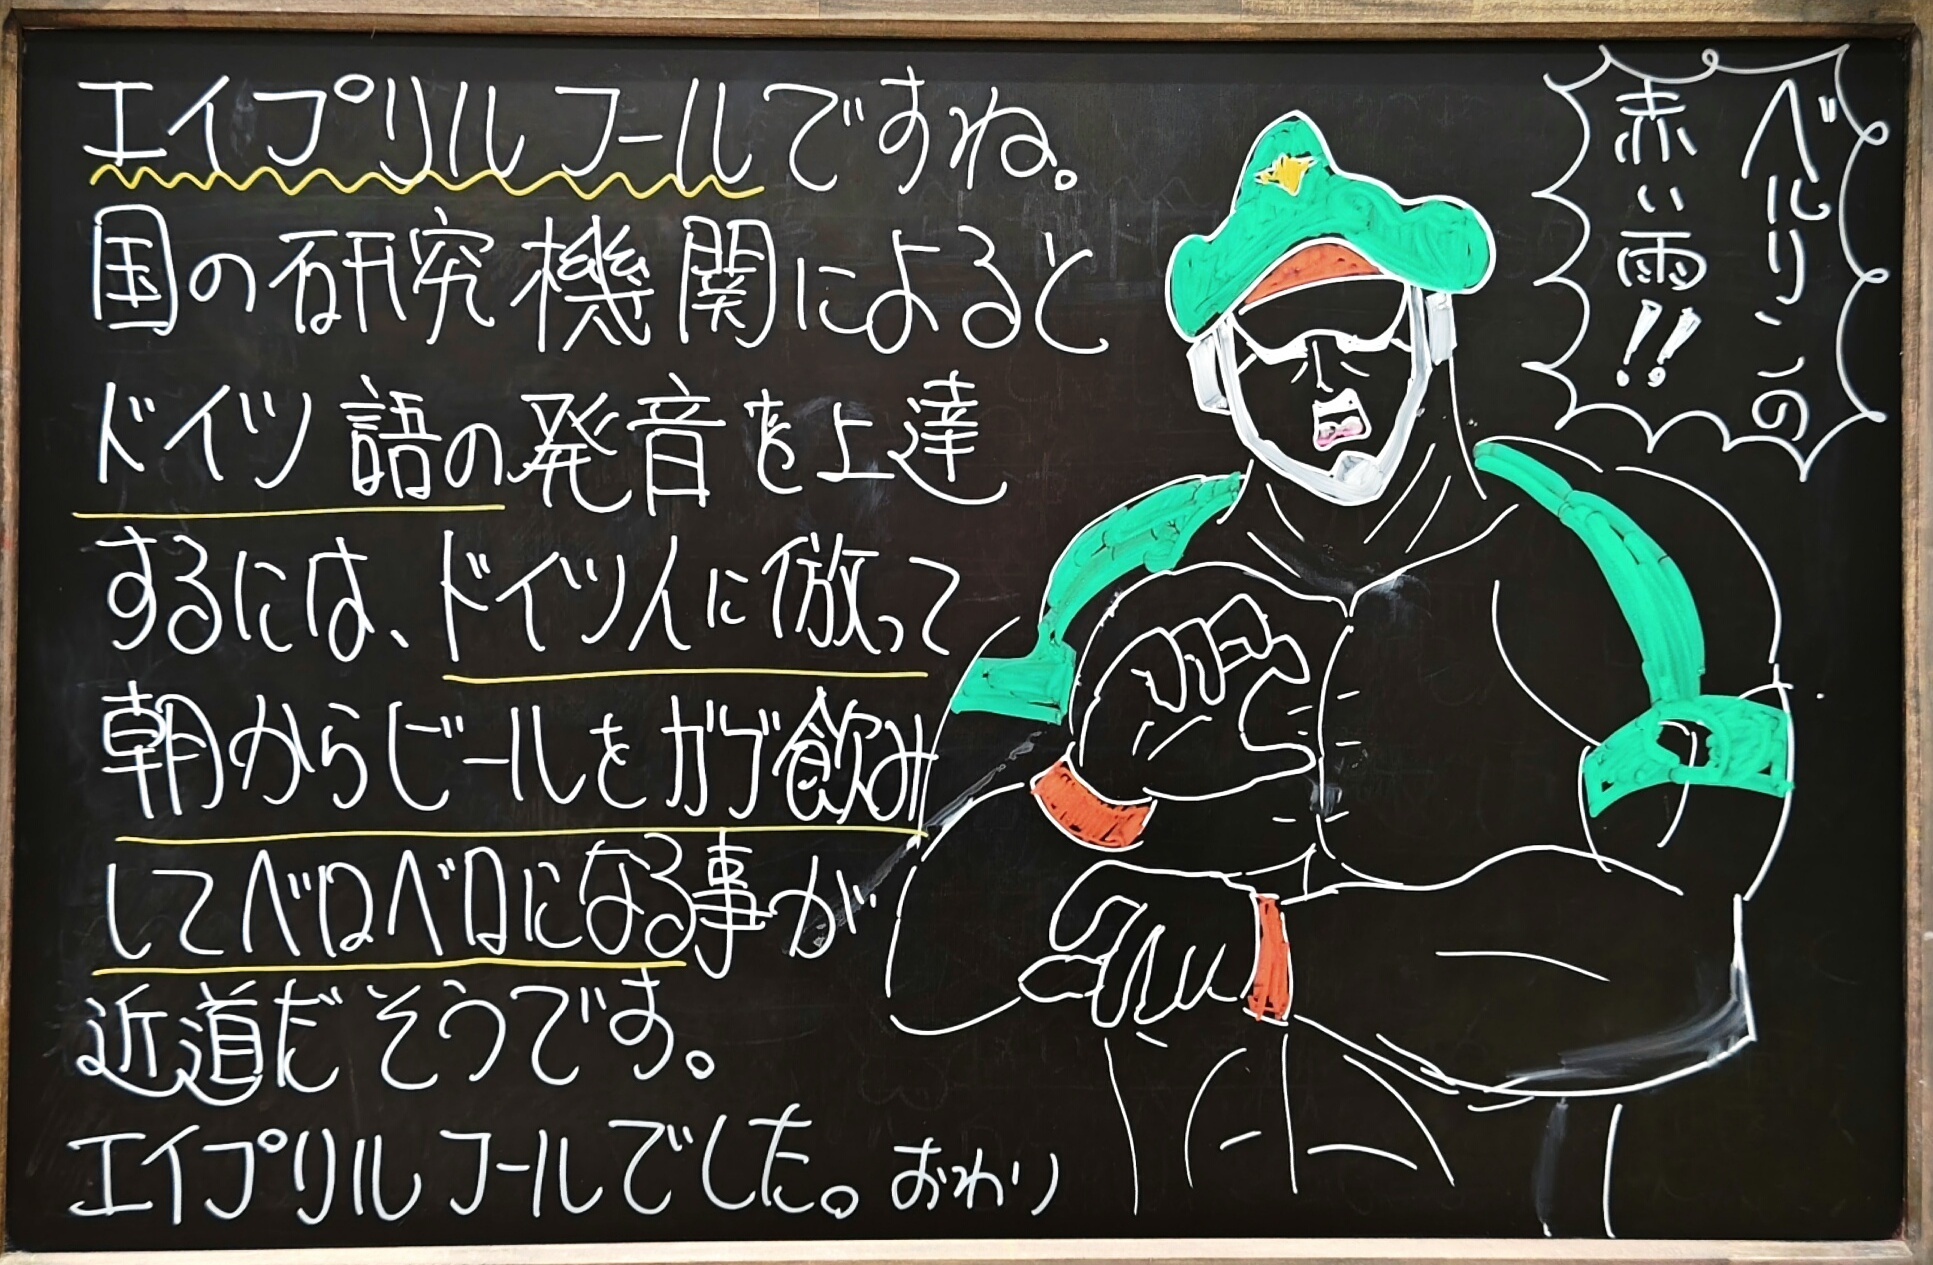 エイプリルフールですね。
国の研究機関によると
ドイツ語の発音を上達
するには、ドイツ人に倣って
朝からビールをガブ飲み
してベロベロになる事が
近道だそうです。
エイプリルフールでした。おわり
ベルリンの
赤い雨!!